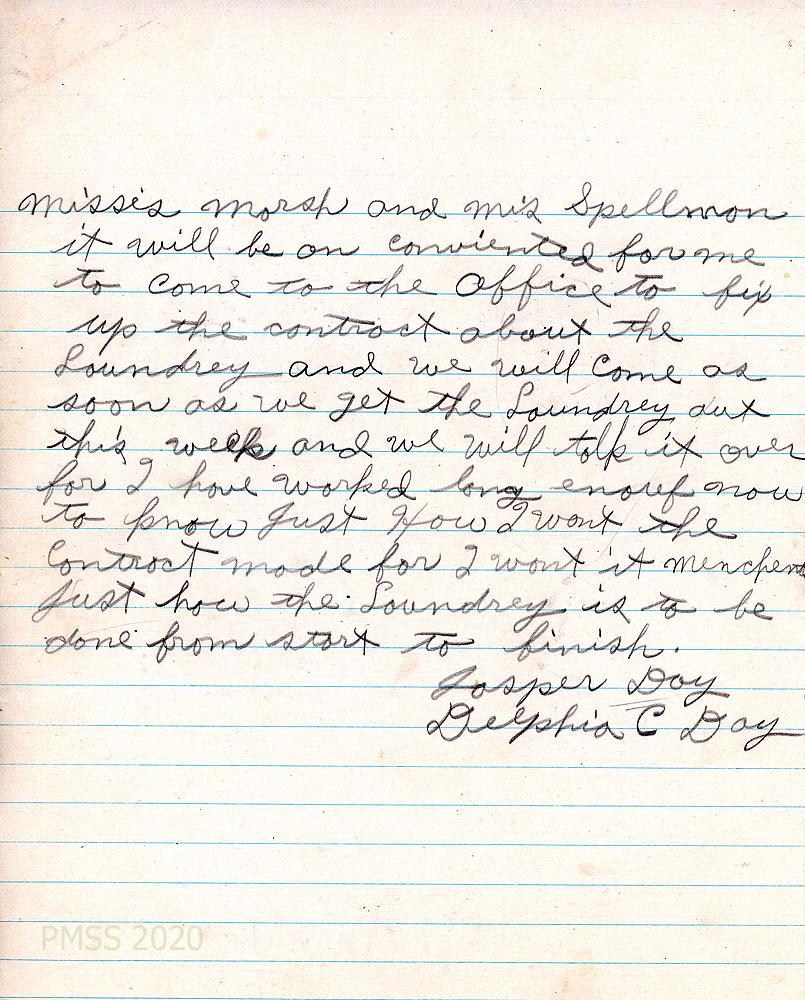 missis marsh and mis Spellman
it will be on conviented for me
to come to the Office to fix
up the contract about the
Laundrey and we will Come as
soon as we get the Laundrey out
this week and we will talk it over
for I have worked long enouef now
to know Just How I want the
Contract made for I want it menchend
Just how the Laundrey is to be
done from start to finish.
Jasper Day
Delphia C Day
PMSS 2020